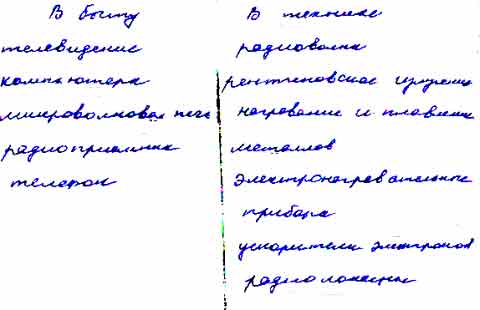 В быту
телевидение
компьютера
микроволновая печь
радиоприемник
телефон
В технике
радиоволны
рентгеновское излучение
нагревание и плавление
металлов
электронагревательные
прибора
ускорители электронов
радиолокация